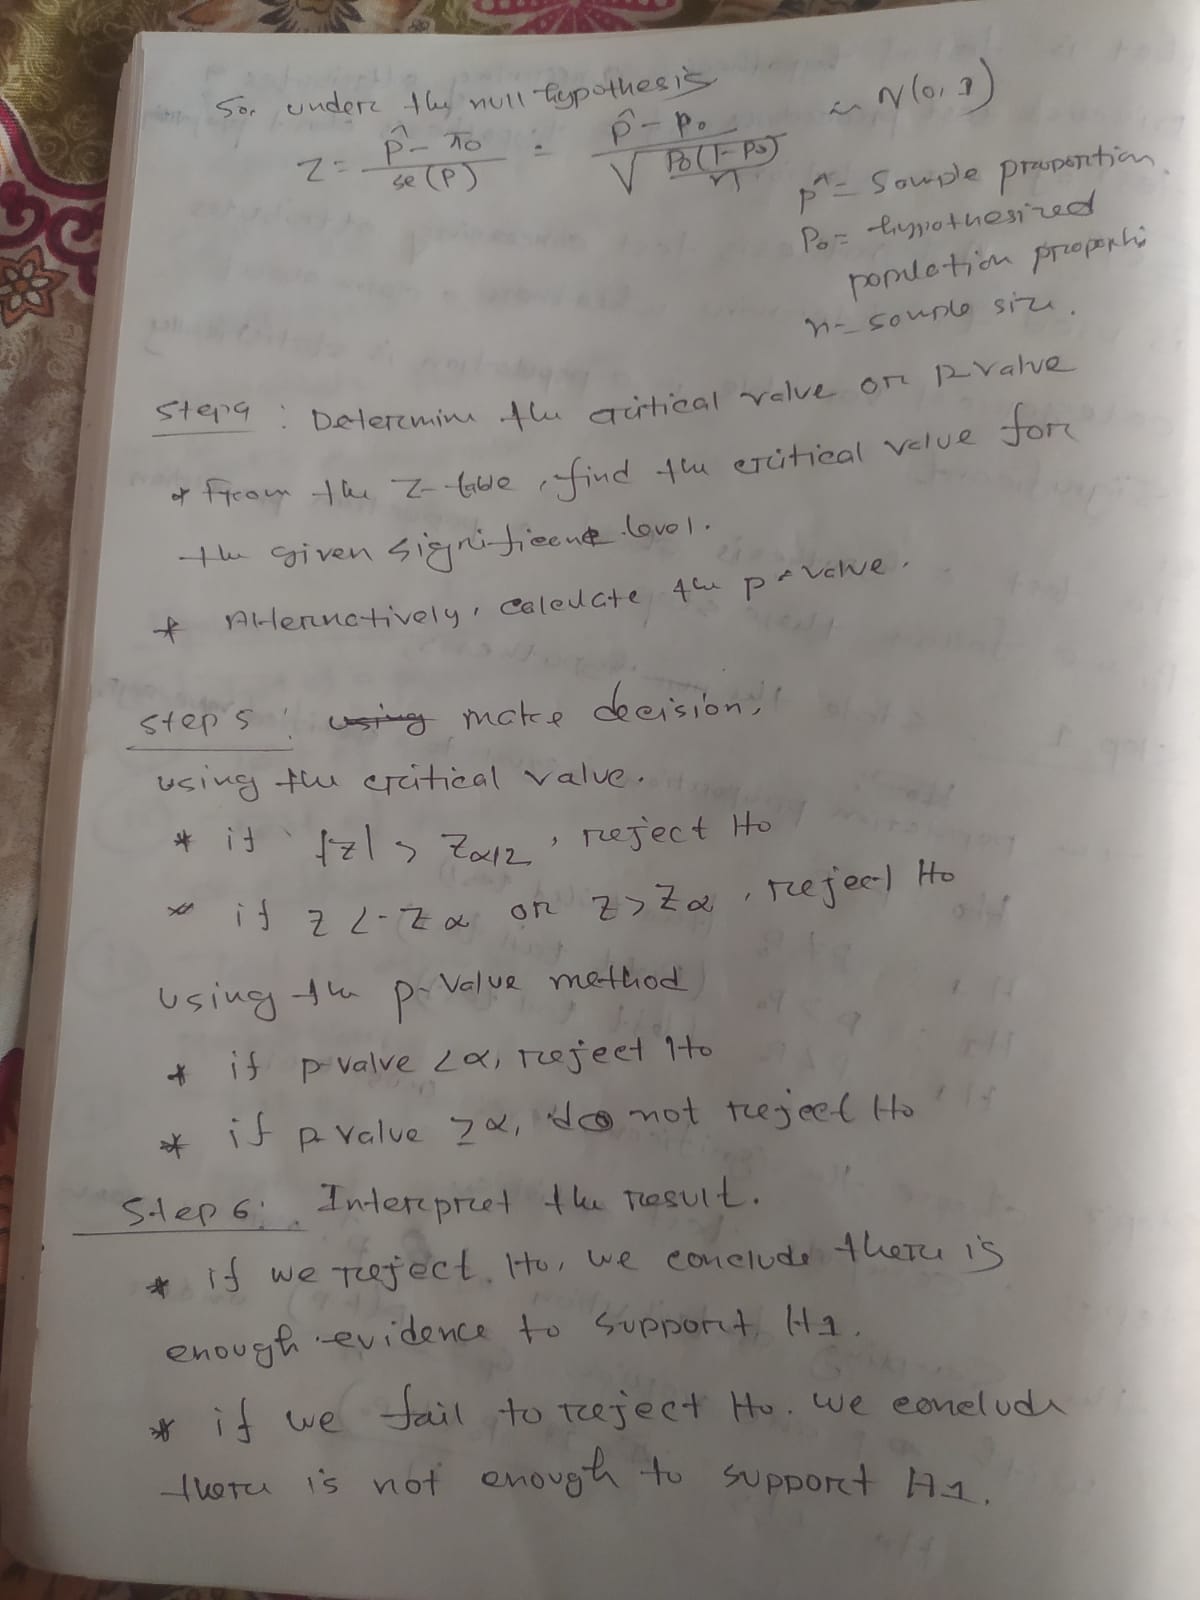 So, under the null hypothesis
Z = (p̂ - π0) / se(p) = (p̂ - p0) / √(p0(1-p0)/n) ~ N(0,1)
p^ = Sample proportion.
P0 = hypothesized
population proporti
n - sample size.
Step 4 : Determine the critical value or p-value
* From the Z-table, find the critical value for
the given significance level.
* Alternatively, calculate the p-value.
Step 5 : using make decision,
using the critical value.
* if |z| > Zα/2, reject H0
* if Z < -Zα or Z > Zα, reject H0
using the p-value method
* if p-value < α, reject H0
* if p-value ≥ α, do not reject H0
Step 6: Interpret the result.
* if we reject H0, we conclude there is
enough evidence to support H1.
* if we fail to reject H0. we conclude
there is not enough to support H1.